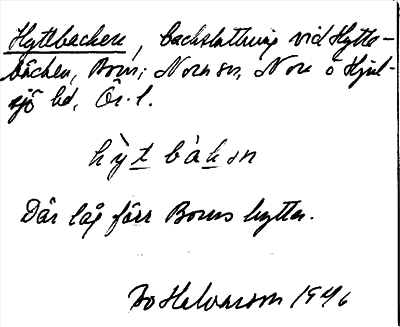 Hyttbacken, backsluttning vid Hytte-
bäcken, Born; Nora sn, Nora o Hjul-
sjö hd, Ör. l.
hỳt bàkɘn
Där låg förr Borns hytta.
Bo Helvarsson 1946